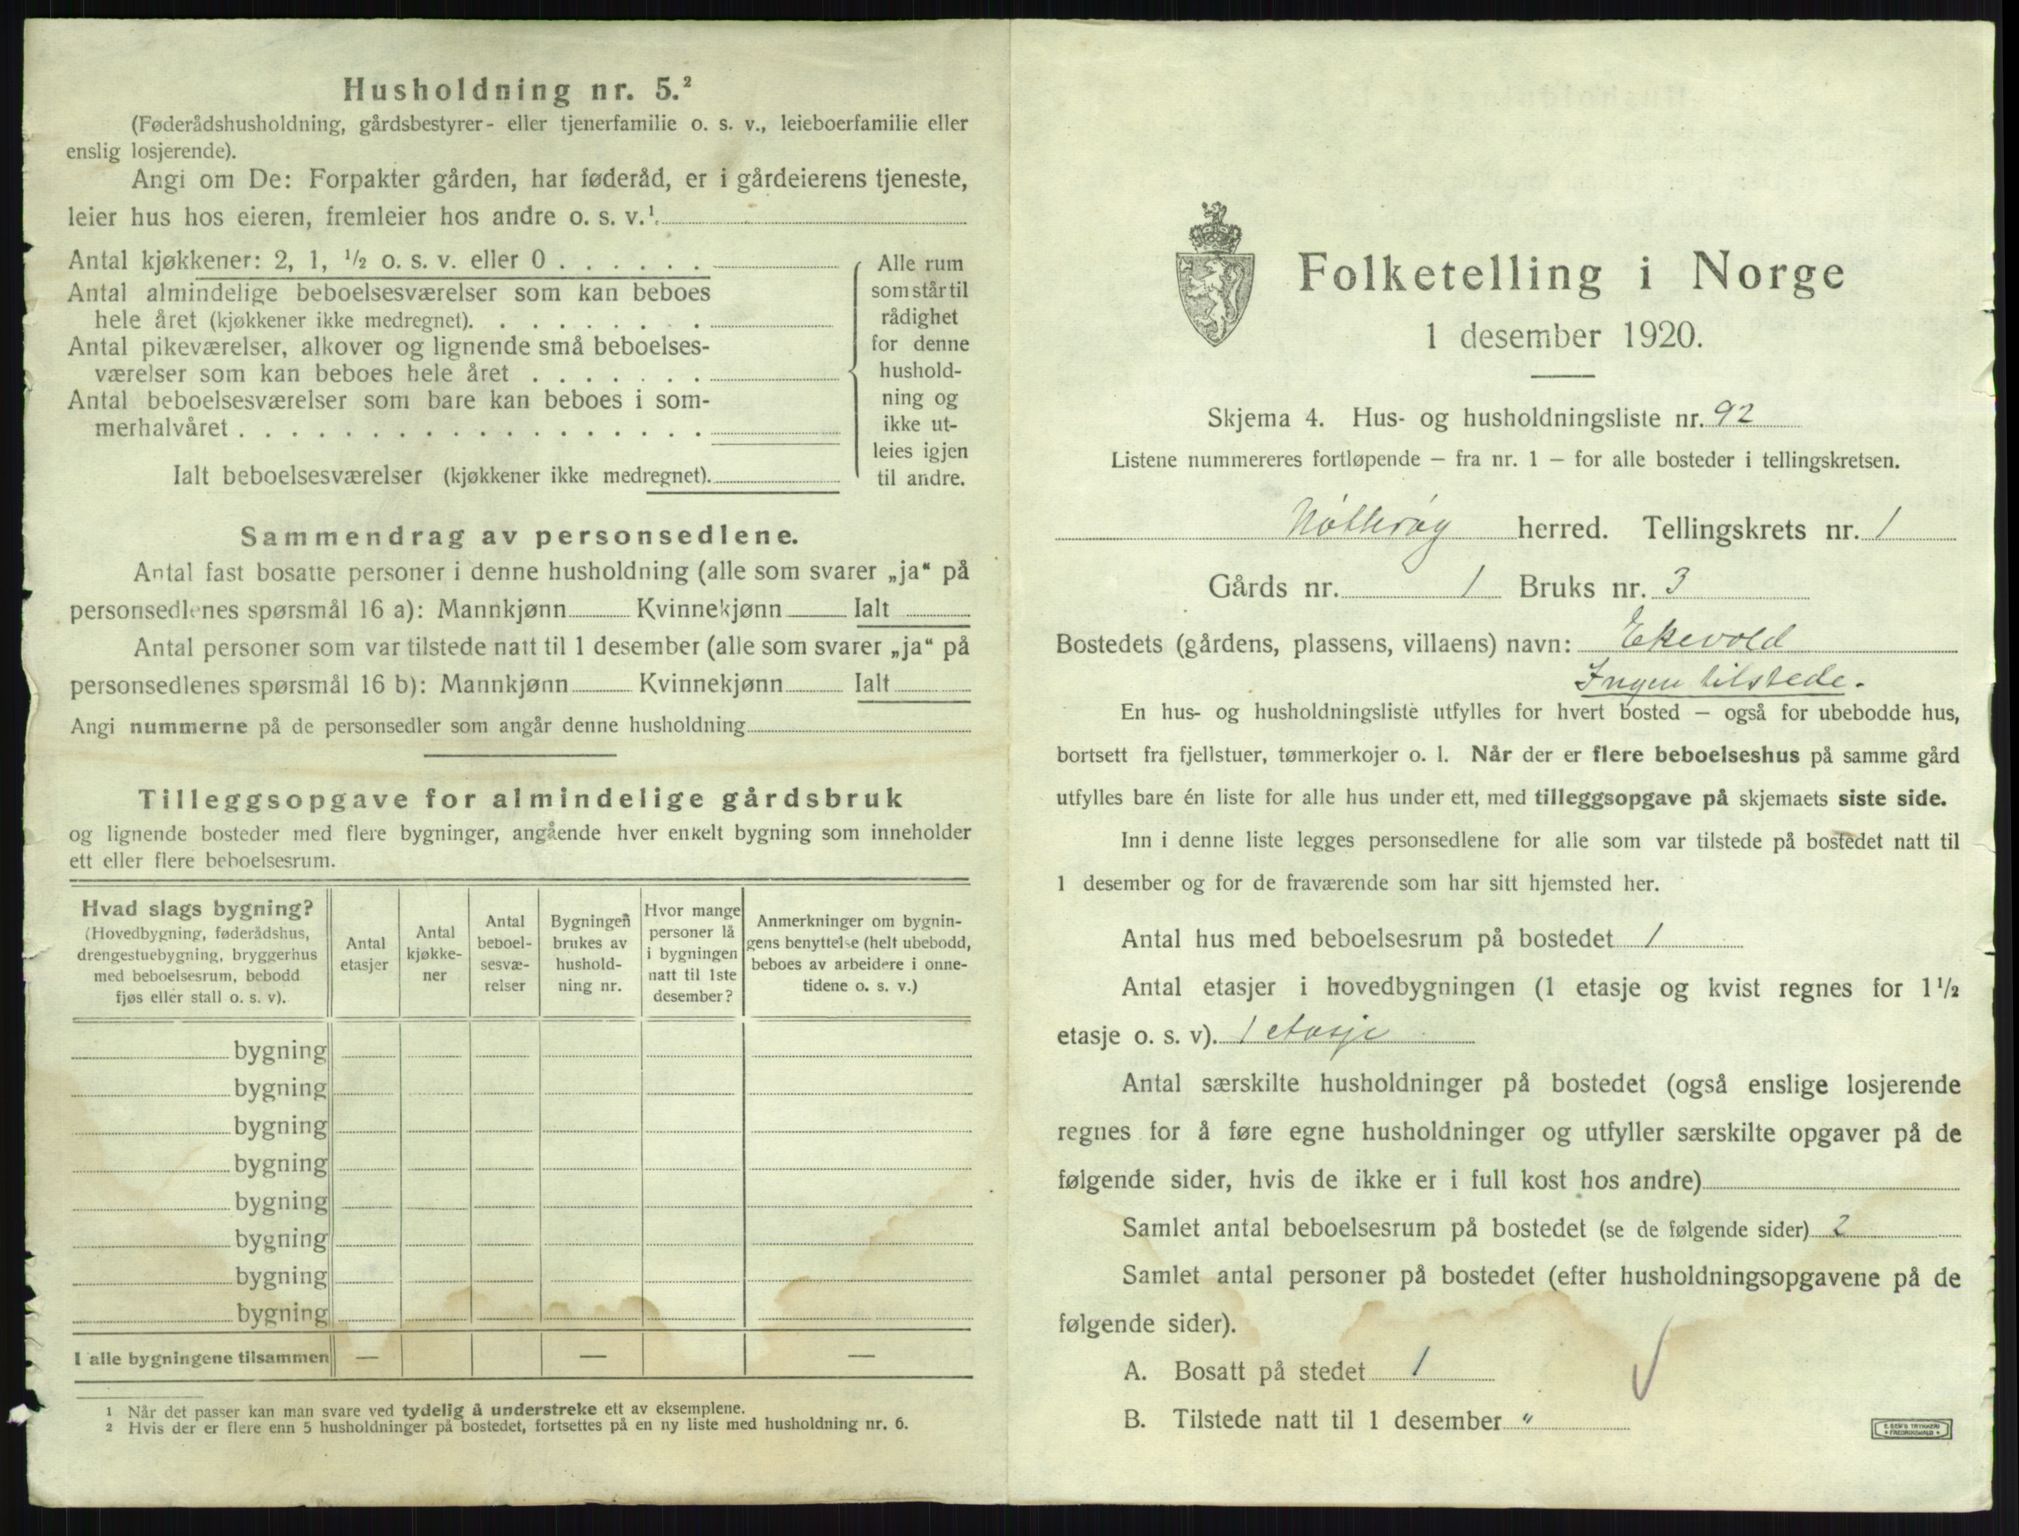 Husholdning nr. 5.²
(Føderådshusholdning, gårdsbestyrer- eller tjenerfamilie o. s. v., leieboerfamilie eller
enslig losjerende).
Angi om De: Forpakter gården, har føderåd, er i gårdeierens tjeneste,
leier hus hos eieren, fremleier hos andre o. s. v.¹.
Antal kjøkkener: 2, 1, ½ o. s. v. eller 0 . . . . . .
Antal almindelige beboelsesværelser som kan beboes
hele året (kjøkkener ikke medregnet). . . . . . . . .
Antal pikeværelser, alkover og lignende små beboelses-
værelser som kan beboes hele året . . . . . . .
Antal beboelsesværelser som bare kan beboes i som-
merhalvåret . . . . . . . . . . . . . . . . . .
Ialt beboelsesværelser (kjøkkener ikke medregnet).
Alle rum
som står til
rådighet
for denne
hushold-
ning og
ikke ut-
leies igjen
til andre.
Sammendrag av personsedlene.
Antal fast bosatte personer i denne husholdning (alle som svarer „ja“ på
personsedlenes spørsmål 16 a): Mannkjønn Kvinnekjønn Ialt
Antal personer som var tilstede natt til 1 desember (alle som svarer „ja“ på
personsedlenes spørsmål 16 b): Mannkjønn Kvinnekjønn Ialt
Angi nummerne på de personsedler som angår denne husholdning
Tilleggsopgave for almindelige gårdsbruk
og lignende bosteder med flere bygninger, angående hver enkelt bygning som inneholder
ett eller flere beboelsesrum.
Hvad slags bygning?
(Hovedbygning, føderådshus,
drengestuebygning, bryggerhus
med beboelsesrum, bebodd
fjøs eller stall o. s. v).
Antal
etasjer
Antal
kjøkke-
ner
Antal
beboel-
sesvæ-
relser
Bygningen
brukes av
hushold-
ning nr.
Hvor mange
personer lå
i bygningen
natt til 1ste
desember?
Anmerkninger om bygnin-
gens benyttelse (helt ubebodd,
beboes av arbeidere i onne-
tidene o. s. v.)
bygning
bygning
bygning
bygning
bygning
bygning
bygning
bygning
I alle bygningene tilsammen — — —
1 Når det passer kan man svare ved tydelig å understreke ett av eksemplene.
2 Hvis der er flere enn 5 husholdninger på bostedet, fortsettes på en ny liste med husholdning nr. 6.
Folketelling i Norge
1 desember 1920.
Skjema 4. Hus- og husholdningsliste nr. 92
Listene nummereres fortløpende — fra nr. 1 — for alle bosteder i tellingskretsen.
Nøtterøy herred. Tellingskrets nr. 1
Gårds nr. 1 Bruks nr. 3
Bostedets (gårdens, plassens, villaens) navn: Ekevold
Ingen tilstede.
En hus- og husholdningsliste utfylles for hvert bosted — også for ubebodde hus,
bortsett fra fjellstuer, tømmerkojer o. l. Når der er flere beboelseshus på samme gård
utfylles bare én liste for alle hus under ett, med tilleggsopgave på skjemaets siste side.
Inn i denne liste legges personsedlene for alle som var tilstede på bostedet natt til
1 desember og for de fraværende som har sitt hjemsted her.
Antal hus med beboelsesrum på bostedet 1
Antal etasjer i hovedbygningen (1 etasje og kvist regnes for 1½
etasje o. s. v). 1 etasje
Antal særskilte husholdninger på bostedet (også enslige losjerende
regnes for å føre egne husholdninger og utfyller særskilte opgaver på de
følgende sider, hvis de ikke er i full kost hos andre)
Samlet antal beboelsesrum på bostedet (se de følgende sider) 2
Samlet antal personer på bostedet (efter husholdningsopgavene på de
følgende sider).
A. Bosatt på stedet 1
B. Tilstede natt til 1 desember „
E. SEM'S TRYKKERI
FREDRIKSHALD